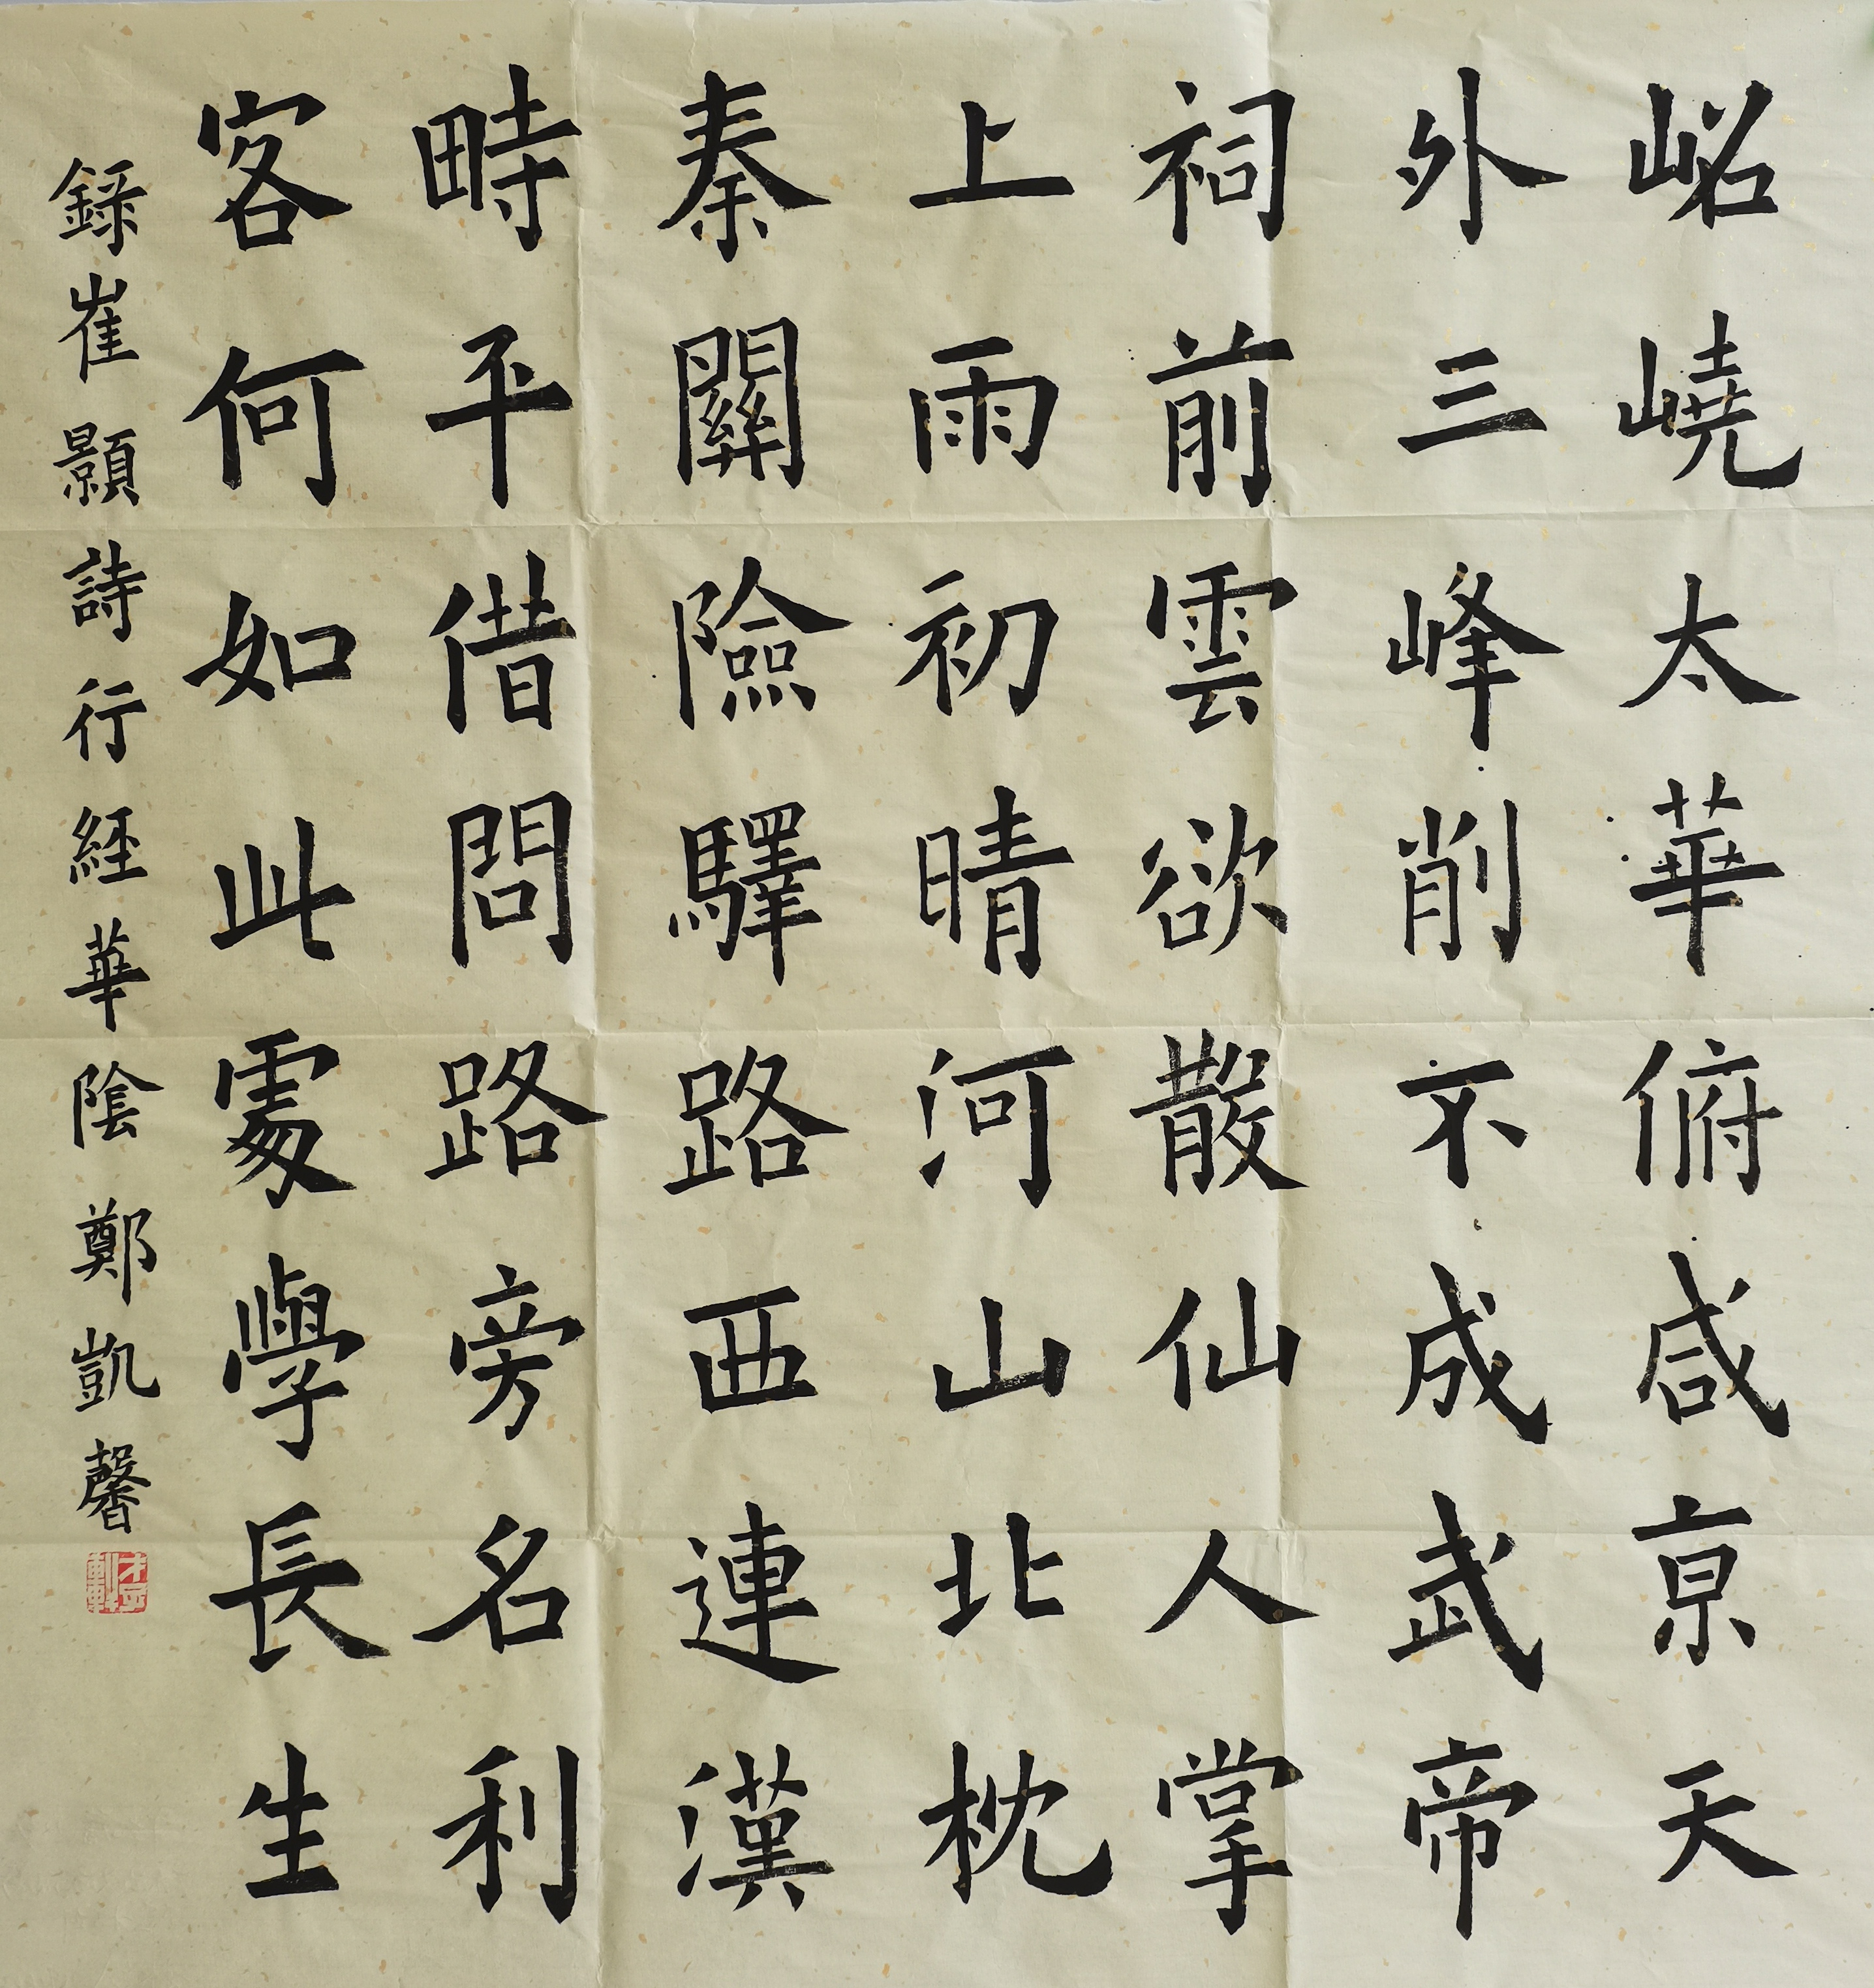 岧嶢太華俯咸京天
外三峰削不成武帝
祠前雲欲散仙人掌
上雨初晴河山北枕
秦關險驛路西連漢
畤平借問路旁名利
客何如此處學長生
錄崔顥詩行經華陰鄭凱馨